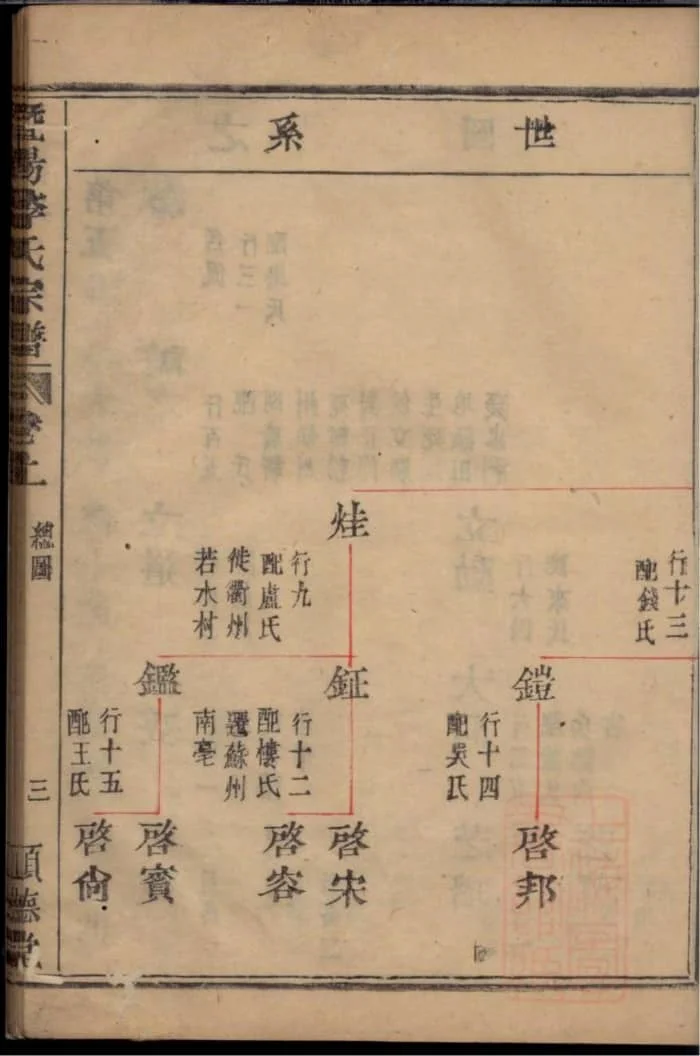 世系
行十三
配錢氏
鎧
行十四
配吳氏
啓邦
烓
行九
配盧氏
徙衢州
若水村
鉦
行十二
配樓氏
遷蘇州
南亳
啓宋
啓容
鑑
行十五
配王氏
啓賓
啓尙
暨陽李氏宗譜
卷上
總圖
三
順德堂